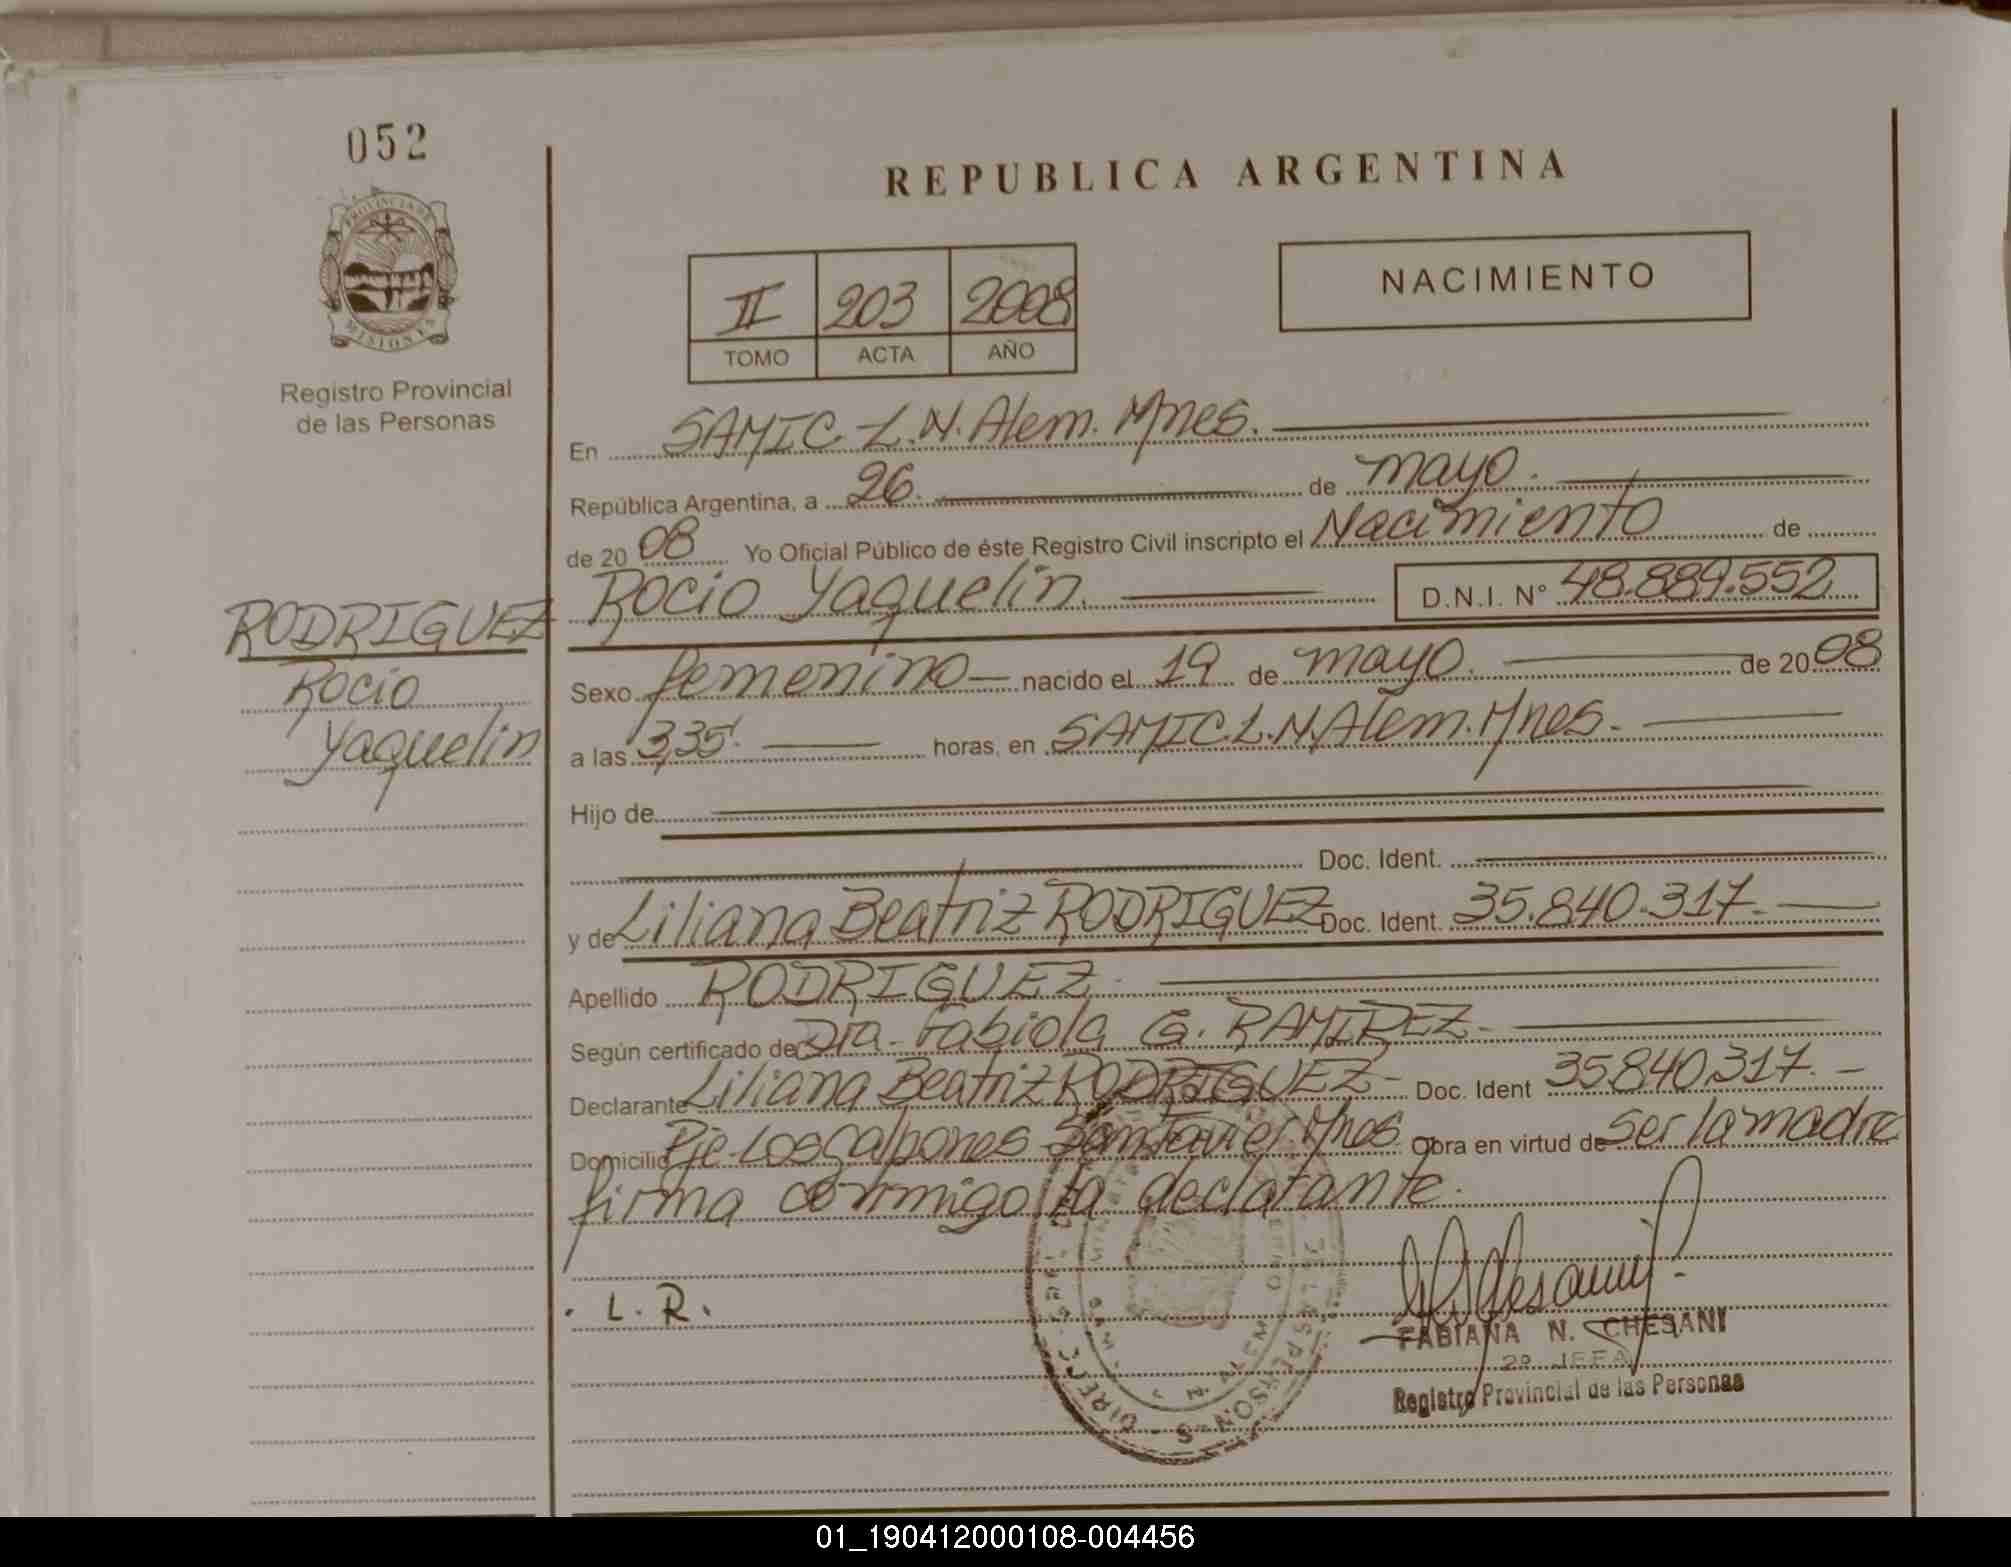 052
PROVINCIA DE
MISIONES
Registro Provincial
de las Personas
RODRIGUEZ
Rocio
Yaquelin
REPUBLICA ARGENTINA
II 203 2008
TOMO ACTA AÑO
NACIMIENTO
En SAMIC L.N. Alem. Mnes.
República Argentina, a 26. de mayo.
de 20 08 Yo Oficial Público de éste Registro Civil inscripto el Nacimiento de
Rocio Yaquelin. D.N.I. N° 48.889.552
Sexo femenino nacido el 19 de mayo. de 20 08
a las 3,35. horas, en SAMIC.L.N.Alem.Mnes.
Hijo de
Doc. Ident.
y de Liliana Beatriz RODRIGUEZ Doc. Ident. 35.840.317.
Apellido RODRIGUEZ.
Según certificado de Dra. Fabiola G. RAMIREZ
Declarante Liliana Beatriz RODRIGUEZ Doc. Ident 35840317.
Domicilio Pje Los Galpones San Javier Mnes. Obra en virtud de ser la madre
firma conmigo la declarante.
. L. R.
FABIANA N. CHESANI
2º JEFA
Registro Provincial de las Personas
01_190412000108-004456